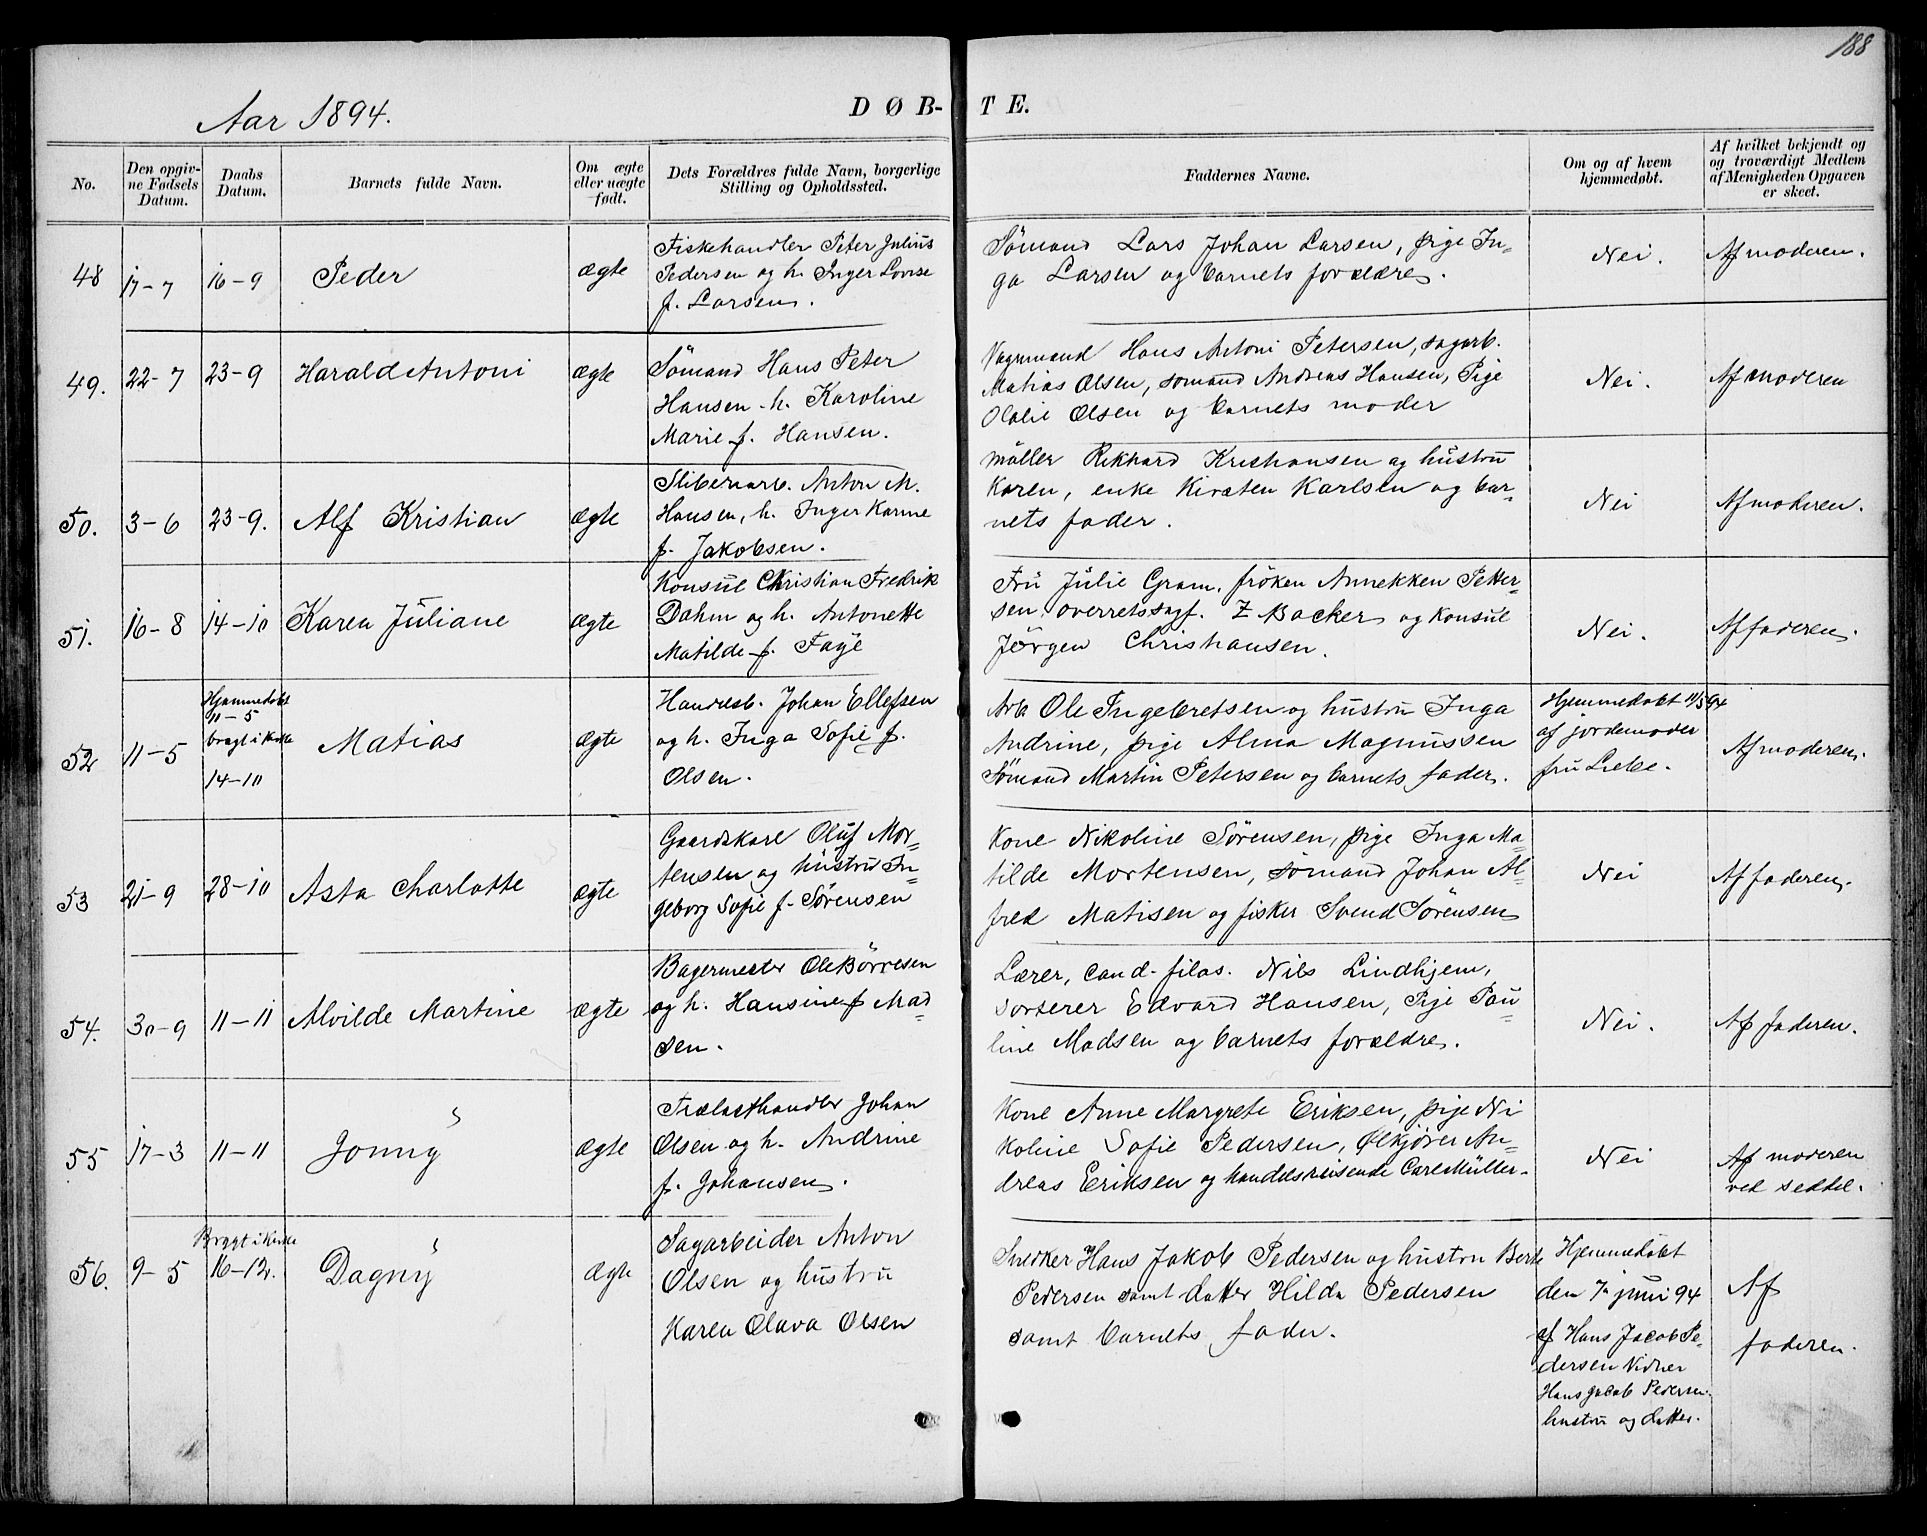 188
Aar 1894.
DØB-TE.
No.
Den opgiv-
ne Fødsels
Datum.
Daabs
Datum.
Barnets fulde Navn.
Om ægte
eller uægte
født.
Dets Forældres fulde Navn, borgerlige
Stilling og Opholdssted.
Faddernes Navne.
Om og af hvem
hjemmedøbt.
Af hvilket bekjendt og
og troværdigt Medlem
af Menigheden Opgaven
er skeet.
48
17-7
16-9
Peder
ægte
Fiskehandler Peter Julius
Pedersen og h. Inger Lovise
f. Larsen.
Sømand Lars Johan Larsen, pige In-
ga Larsen og barnets forældre.
Nei.
Af moderen.
49.
22-7
23-9
Harald Antoni
ægte
Sømand Hans Peter
Hansen h. Karoline
Marie f. Hansen.
Vognmand Hans Antoni Petersen, sagarb.
Matias Olsen, sømand Andreas Hansen, Pige
Olalie Olsen og barnets moder
Nei.
Af moderen
50.
3-6
23-9.
Alf Kristian
ægte
Sliberiarb. Anton M.
Hansen, h. Inger Karine
f. Jakobsen.
Møller Rikhard Kristiansen og hustru
Karen, enke Kirsten Karlsen og bar-
nets fader.
Nei
Af moderen.
51.
16-8
14-10
Karen Juliane
ægte
Konsul Christian Fredrik
Dahm og h. Antonette
Matilde f. Faye
Fru Julie Gram, frøken Annekken Petter-
sen, overretssagf. Z Backer og Konsul
Jörgen Christiansen.
Nei.
Af faderen.
52
11-5
Hjemmedøbt
11-5
bragt i Kirke
14-10
Matias
ægte
Handelsb. Johan Ellefsen
og h. Inga Sofie f.
Olsen.
Arb. Ole Ingebretsen og hustru Inga
Andrine, pige Alma Magnussen
Sømand Martin Petersen og barnets fader.
Hjemmedøbt 11/5 94
af jordemoder
fru Liebe.
Af moderen.
53
21-9
28-10
Asta Charlotte
ægte
Gaardskarl Oluf Mor-
tensen og hustru In-
geborg Sofie f. Sørensen
Kone Nikoline Sørensen, pige Inga Ma-
tilde Mortensen, sømand Johan Al-
fred Matisen og fisker Svend Sørensen
Nei
Af faderen.
54.
30-9
11-11
Alvilde Martine
ægte
Bagermester Ole Børresen
og h. Hansine f Mad
sen.
Lærer, cand. filos. Nils Lindhjem,
sorterer Edvard Hansen, Pige Pau-
line Madsen og barnets forældre.
Nei.
Af faderen.
55
17-3
11-11
Jonny
ægte
Trælasthandler Johan
Olsen og h. Andrine
f. Johansen.
Kone Anne Margrete Eriksen, pige Ni
koline Sofie Pedersen, Ølkjører An-
dreas Eriksen og handelsreisende Carl Müller.
Nei
Af moderen
ved seddel.
56.
9-5
Bragt i Kirke
16-12.
Dagny
ægte
Sagarbeider Anton
Olsen og hustru
Karen Olava Olsen
Snedker Hans Jakob Pedersen og hustru Berte
Pedersen samt datter Hilda Pedersen
samt barnets fader.
Hjemmedøbt
den 7de juni 94
af Hans Jacob Pe-
dersen Vidner
Hans Jacob Pedersen
hustru og datter.
Af
faderen.